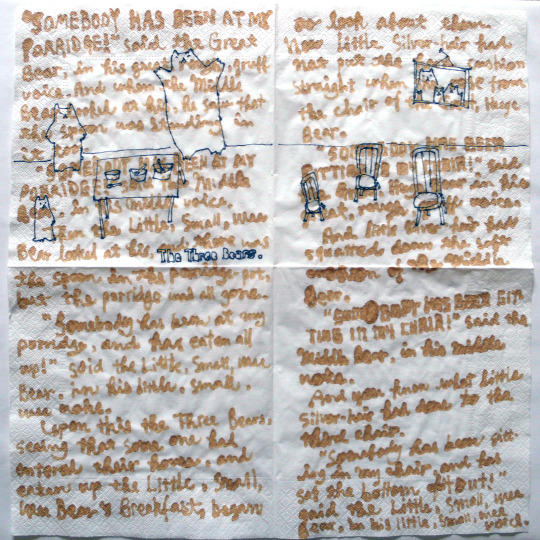 "SOMEBODY HAS BEEN AT MY
PORRIDGE!" said the Great
Bear, in his gruff
voice. And when the Middle
Bear looked at his, he saw that
the spoon was standing in
it too.
"SOMEBODY HAS BEEN AT MY
PORRIDGE!" said the Middle
in his middle voice.
Then the Little, Small, Wee
Bear looked at his, and there was
The Three Bears.
the spoon in the pot,
but the porridge was all gone.
"Somebody has been at my
porridge, and has eaten all
up!" said the Little, Small, wee
Bear, in his little, small,
wee voice.
Upon this the Three Bears,
seeing that some one had
entered their house, and
eaten up the Little, Small,
Wee Bear's Breakfast, began
to look about them.
Now Little Silver-hair had
not put the cushion
straight when from
the chair of the Huge
Bear.
"SOMEBODY HAS BEEN
SITTING IN MY CHAIR!" said
the Great Huge Bear in his
great, rough, gruff voice.
And Little Silver-hair had
squatted down the soft
cushion of the Middle
Bear.
"SOMEBODY HAS BEEN SIT
TING IN MY CHAIR!" said the
Middle Bear, in his middle
voice.
And you know what little
Silver-hair had done to the
third chair.
"Somebody has been sitt-
ing in my chair, and has
sat the bottom of it out!"
said the Little, Small, wee
Bear, in his little, small, wee
voice.